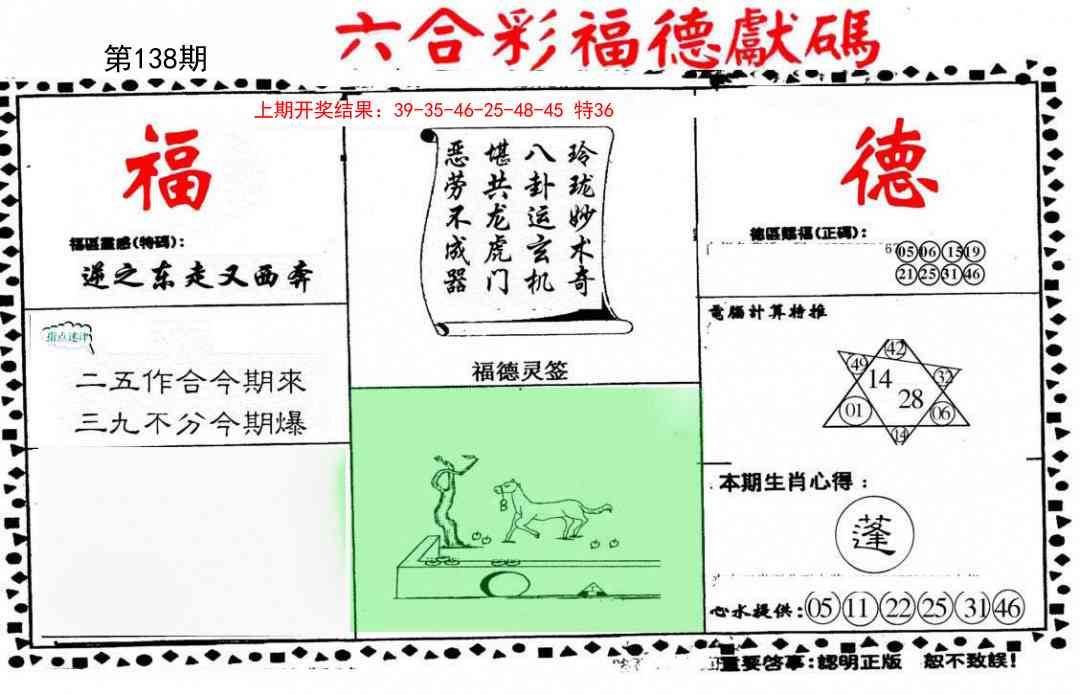 第138期
六合彩福德獻碼
上期开奖结果：39-35-46-25-48-45 特36
福
福區靈感(特碼)：
逆之东走又西奔
指点迷津
二五作合今期來
三九不分今期爆
玲珑妙术奇
八卦运玄机
堪共龙虎门
恶劳不成器
福德灵签
德
德區賜福(正碼)：
05 06 15 19
21 25 31 46
電腦計算特推
42
49 32
14 28
01 06
14
本期生肖心得：
蓬
心水提供：05 11 22 25 31 46
重要啓事：認明正版 恕不致誤！